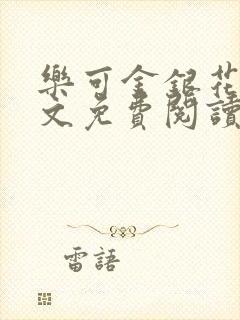 樂可金銀花
文免費閱讀
雷語